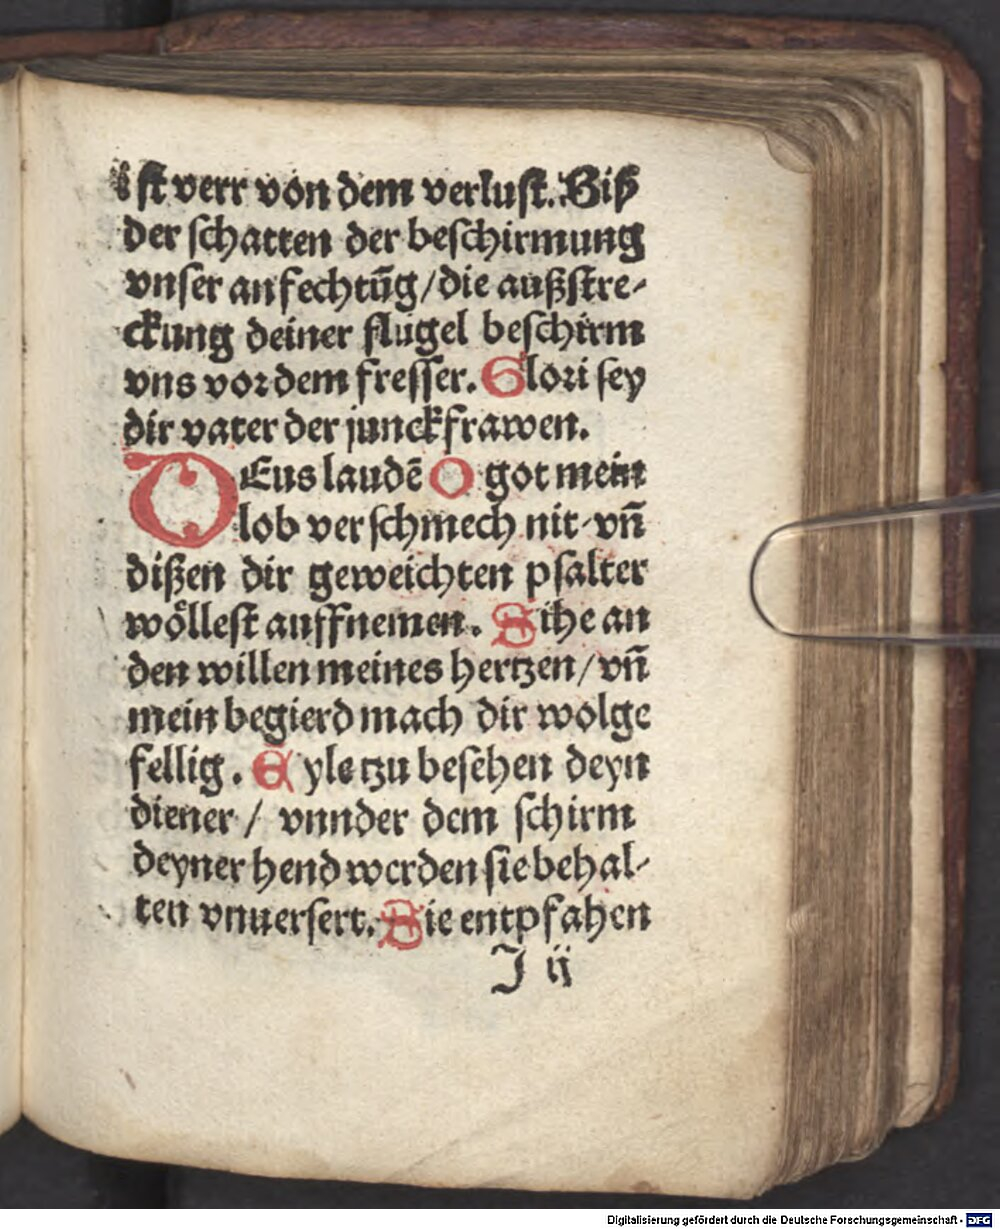 ist verr von dem verlust. Biß
der schatten der beschirmung
vnser anfechtũg/die außstre-
ckung deiner flugel beschirm
vns vor dem fresser. Glori sey
dir vater der junckfrawen.
DEus laudē O got mein
lob verschmech nit vñ
dißen dir geweichten psalter
wöllest auffnemen. Sihe an
den willen meines hertzen/vñ
mein begierd mach dir wolge
fellig. Eyle tzu besehen deyn
diener/ vnnder dem schirm
deyner hend werden sie behal-
ten vnuersert. Sie entpfahen
J ij
Digitalisierung gefördert durch die Deutsche Forschungsgemeinschaft - DFG